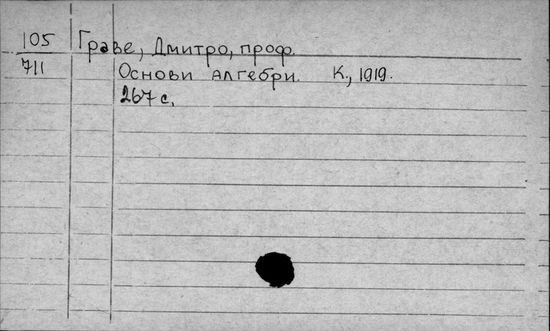 105 Граве, Дмитро, проф.
711 Основи алгебри. К., 1919.
267 с.